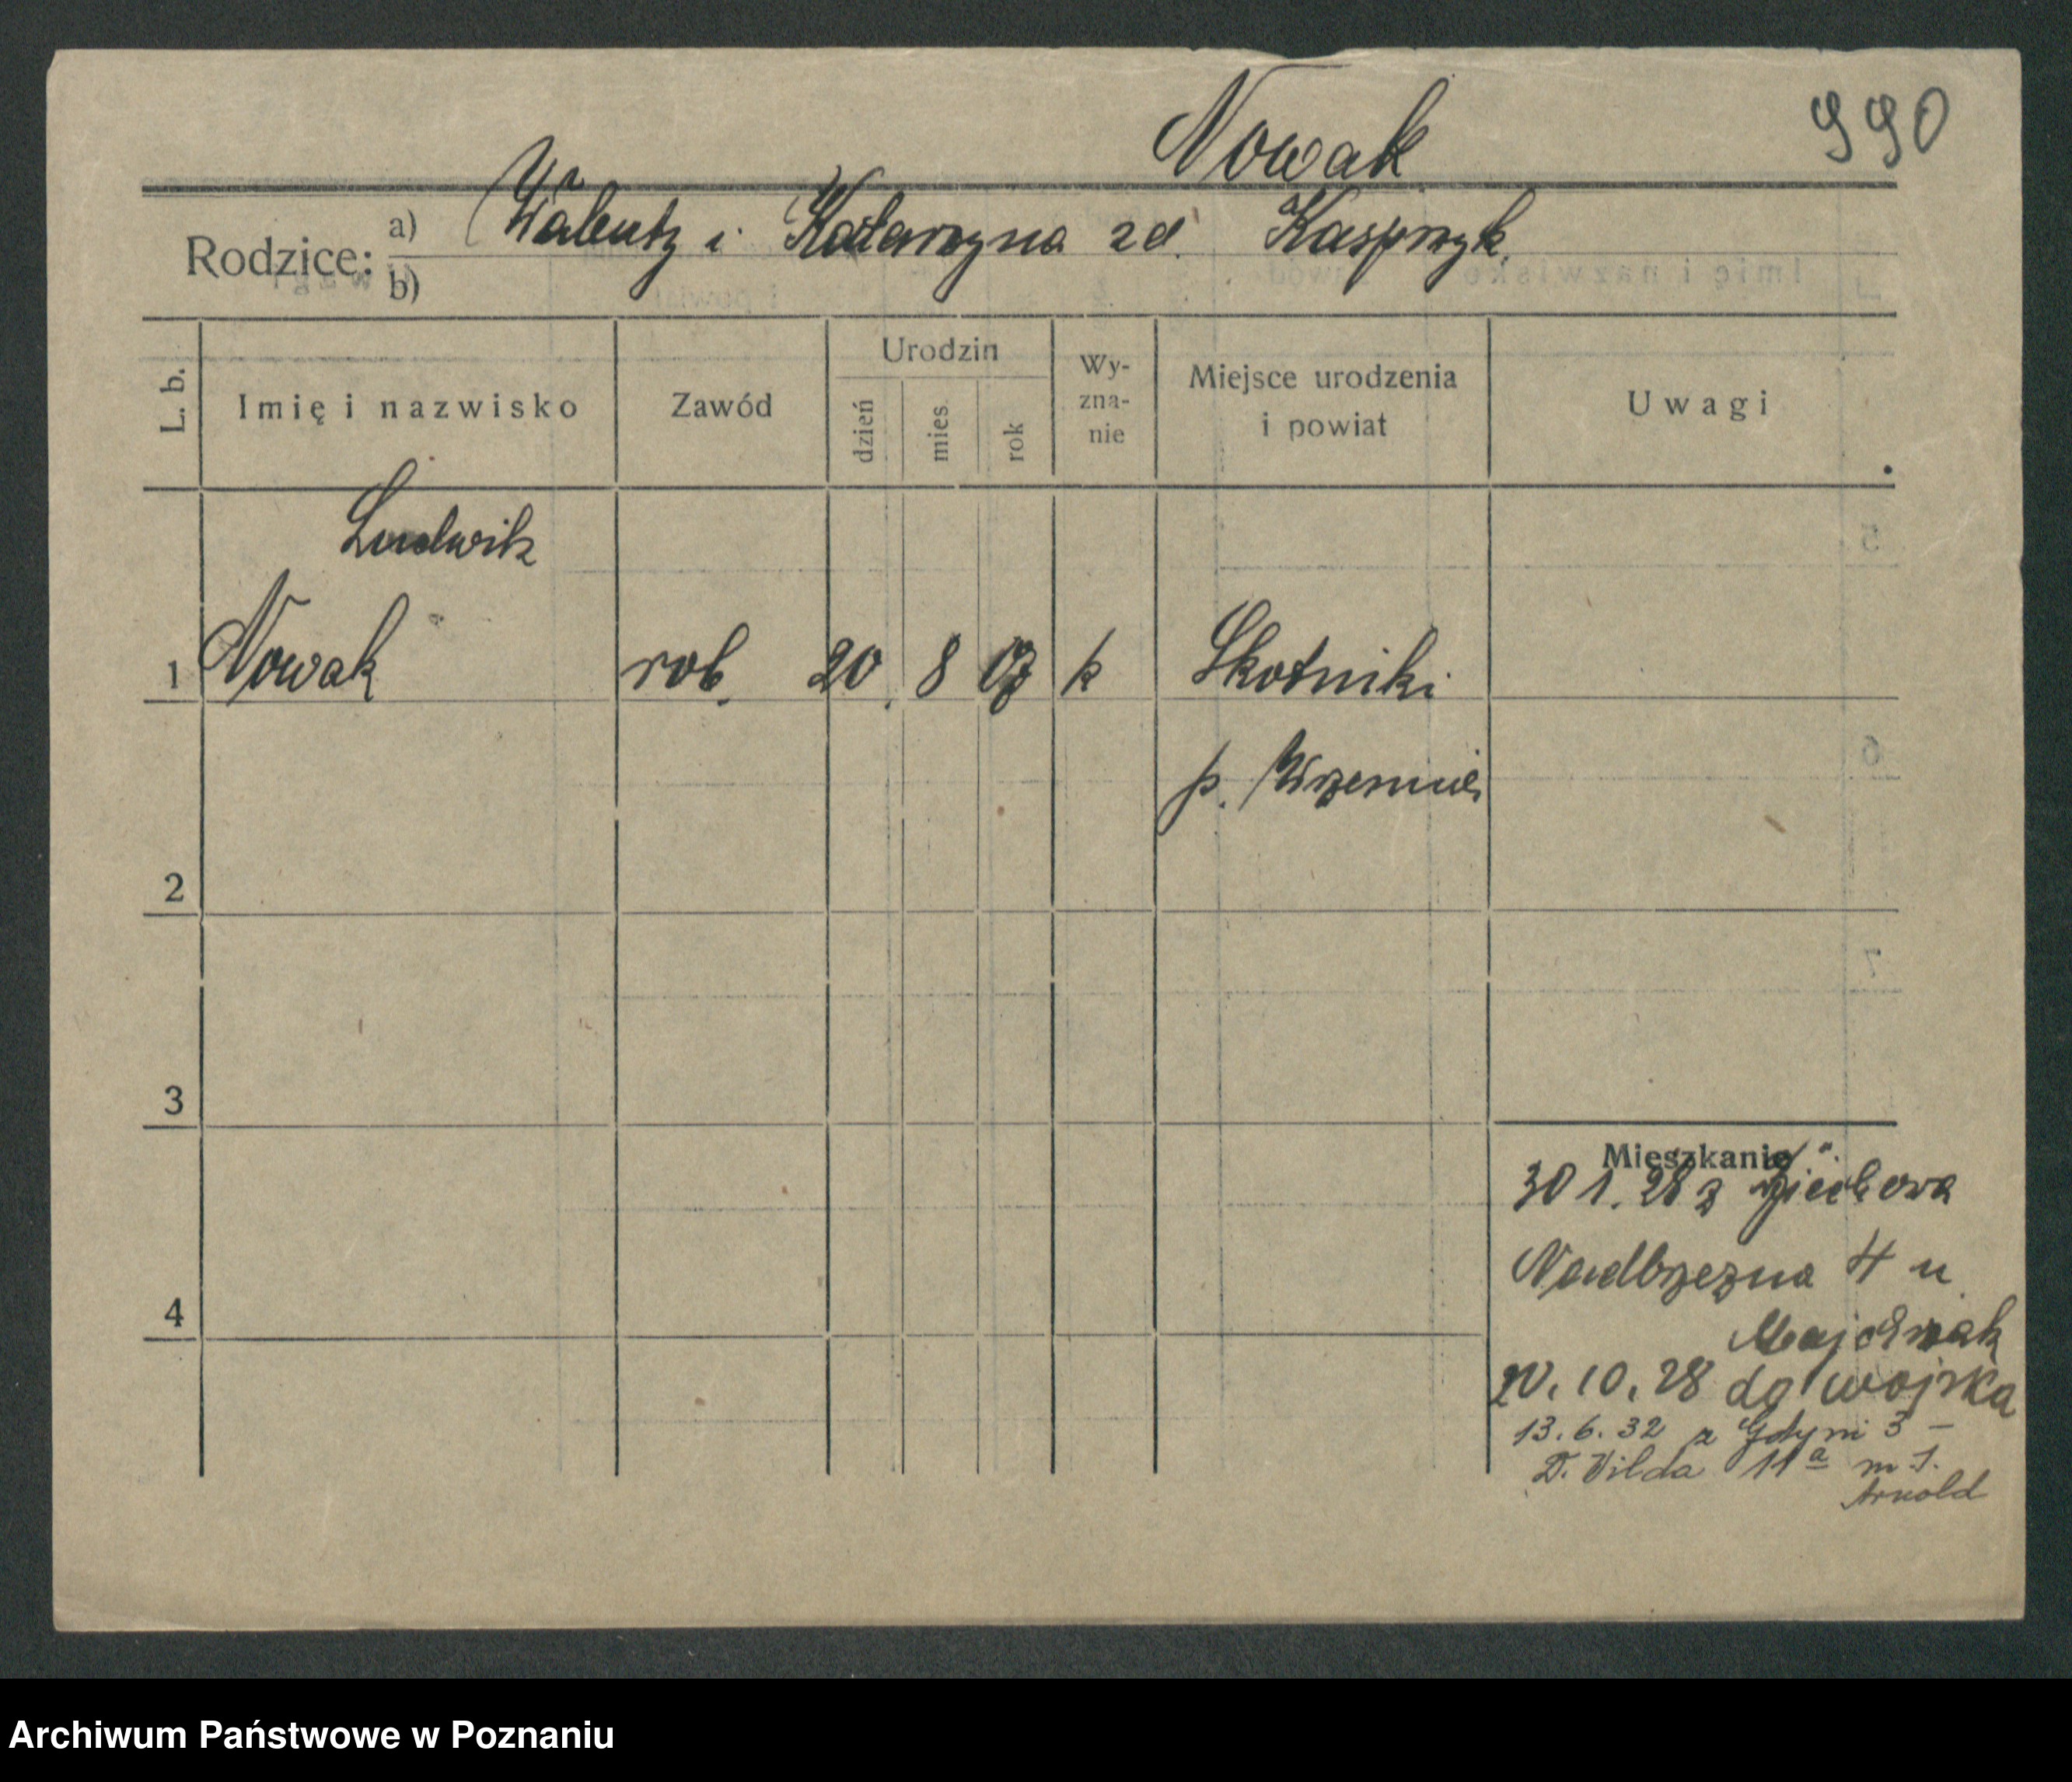 Nowak
990
Rodzice: a) Walenty i Katarzyna zd. Kasprzyk
b)
L. b.
Imię i nazwisko
Zawód
Urodzin
dzień
mies.
rok
Wy-
zna-
nie
Miejsce urodzenia
i powiat
Uwagi
Ludwik
1 Nowak rob. 20. 8 k Skotniki
p. Września
2
3
4
Mieszkanie
30 1. 28 z
Nadbrzezna 4 u
Majchrzak
20. 10. 28 do wojska
13. 6. 32 z Gdyni 3 –
D. Wilda 11a m 1.
Arnold
5
6
7
Archiwum Państwowe w Poznaniu